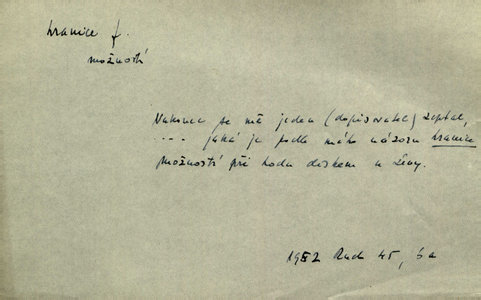 hranice f.
možností
Nakonec se mě jeden (dopisovatel) zeptal,
.... jaká je podle mého názoru hranice
možností při hodu diskem u ženy.
1952 Rudé 45, 6a